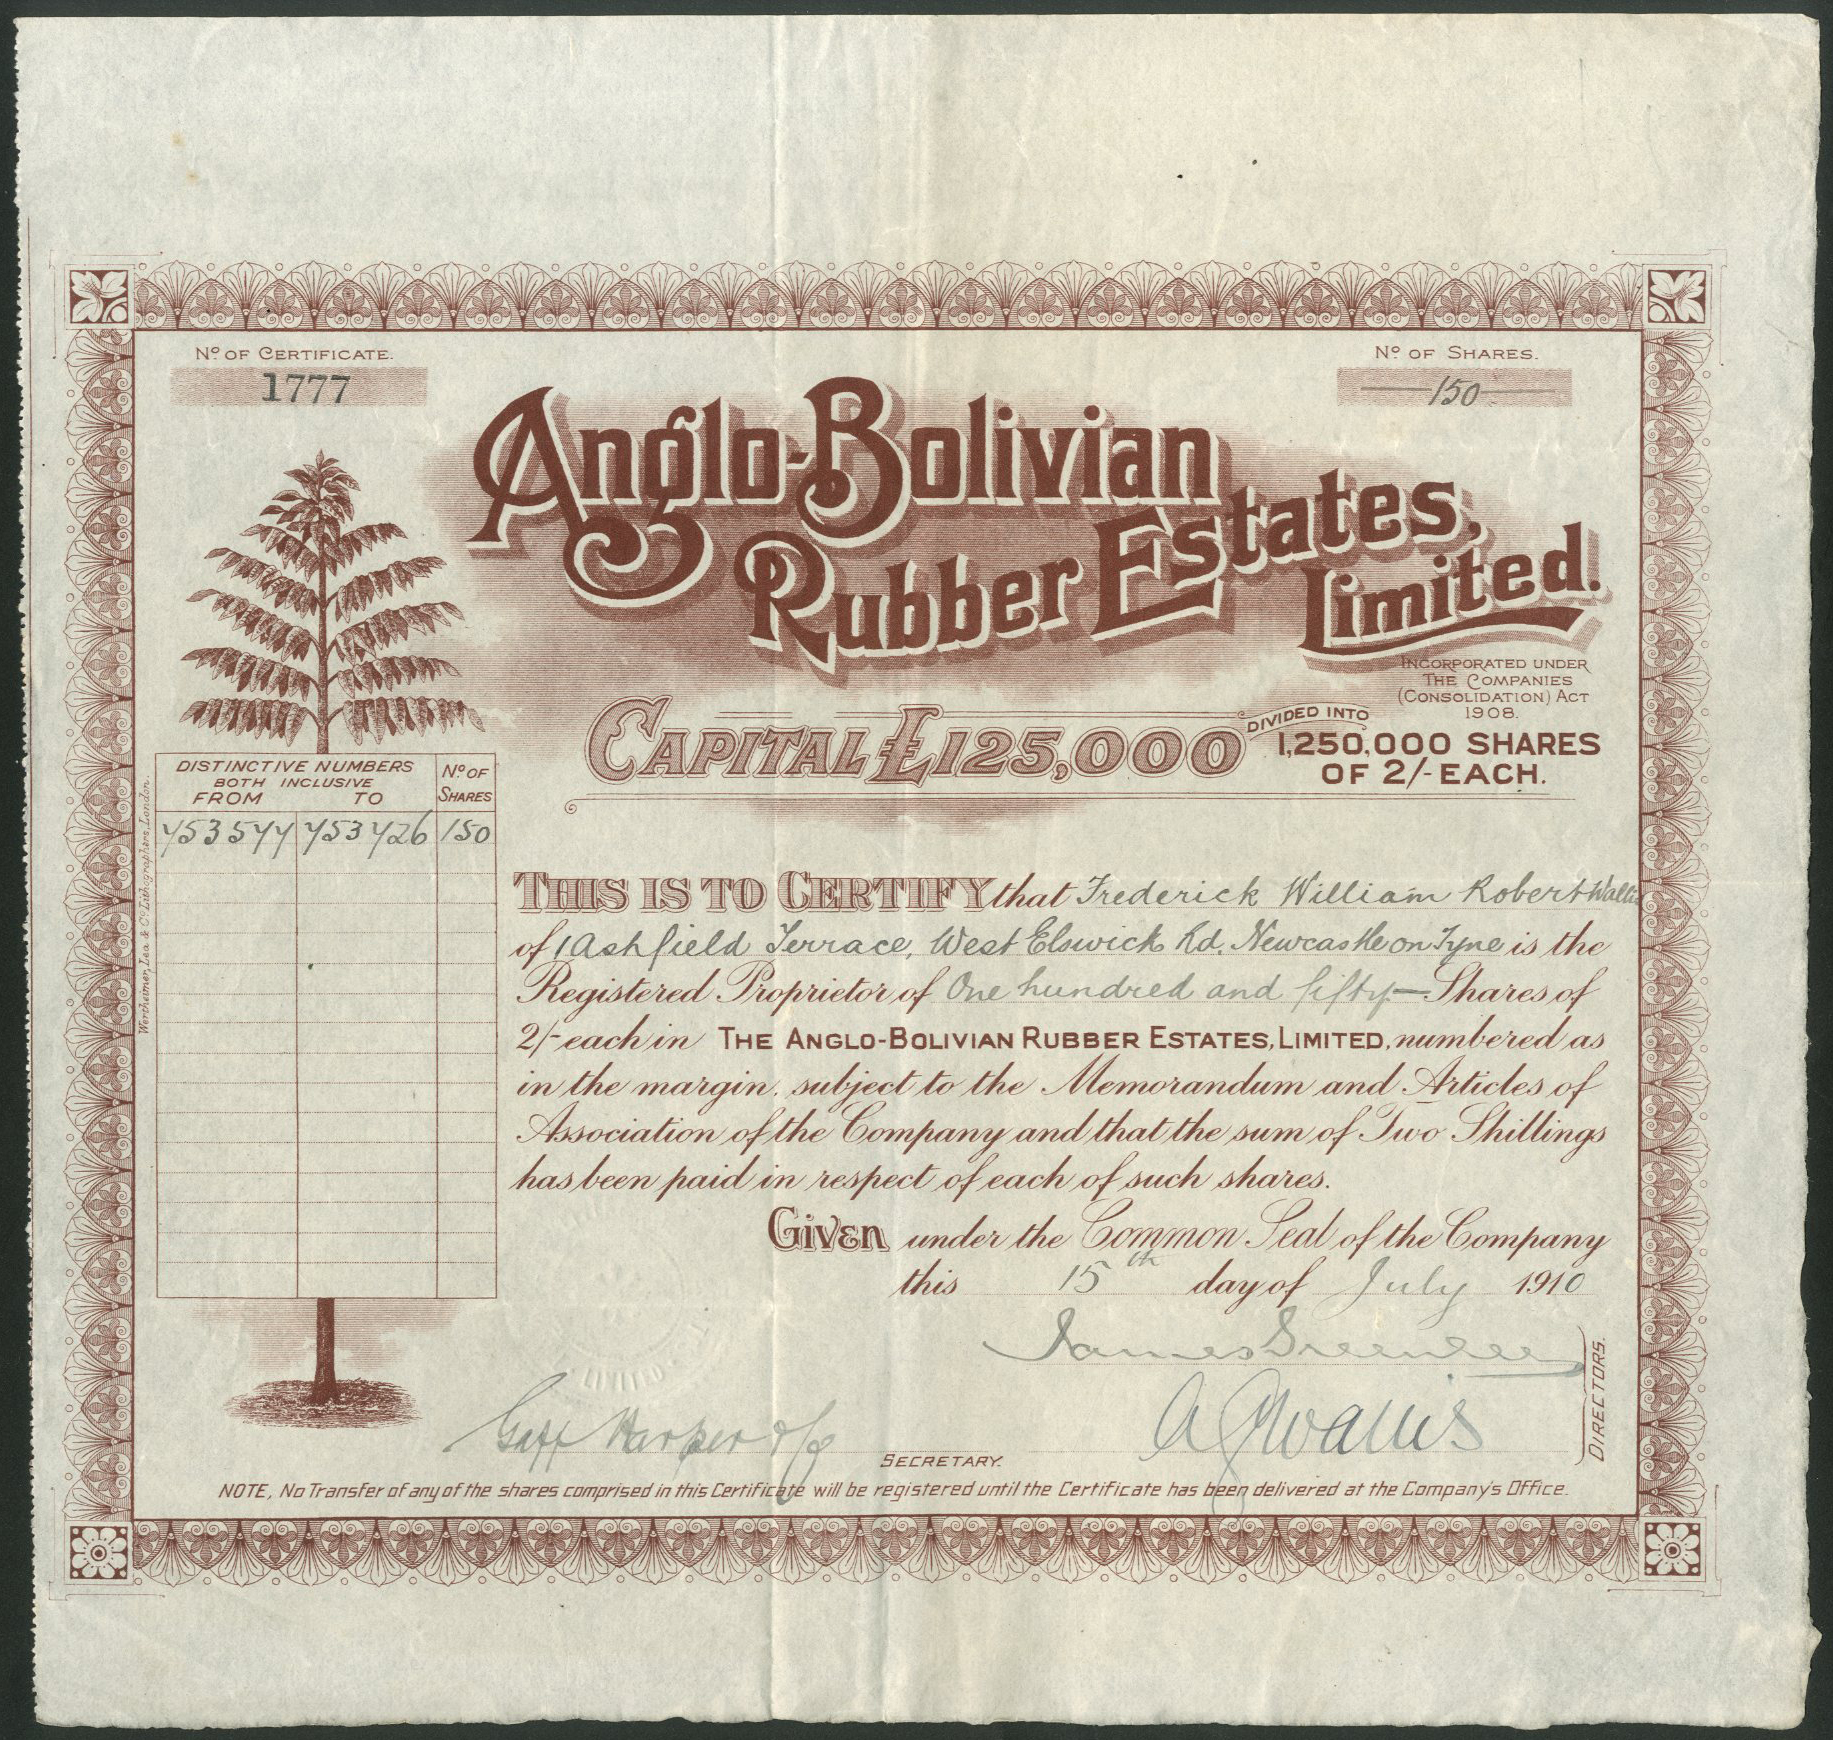 Nº OF CERTIFICATE.
1777
Nº OF SHARES.
150
Anglo-Bolivian
Rubber Estates,
Limited.
INCORPORATED UNDER
THE COMPANIES
(CONSOLIDATION) ACT
1908.
CAPITAL £125,000
DIVIDED INTO
1,250,000 SHARES
OF 2/- EACH.
DISTINCTIVE NUMBERS
BOTH INCLUSIVE
FROM TO
Nº OF
SHARES
753577 753726 150
Wertheimer, Lea & Cº Lithographers, London.
THIS IS TO CERTIFY that Frederick William Robert Wallis
of 1 Ashfield Terrace, West Elswick Rd. Newcastle on Tyne is the
Registered Proprietor of One hundred and fifty— Shares of
2/- each in THE ANGLO-BOLIVIAN RUBBER ESTATES, LIMITED, numbered as
in the margin, subject to the Memorandum and Articles of
Association of the Company and that the sum of Two Shillings
has been paid in respect of each of such shares.
GIVEN under the Common Seal of the Company
this 15th day of July 1910
James Greenlees
LIMITED
Harper
A G Wallis
DIRECTORS.
SECRETARY.
NOTE, No Transfer of any of the shares comprised in this Certificate will be registered until the Certificate has been delivered at the Company's Office.